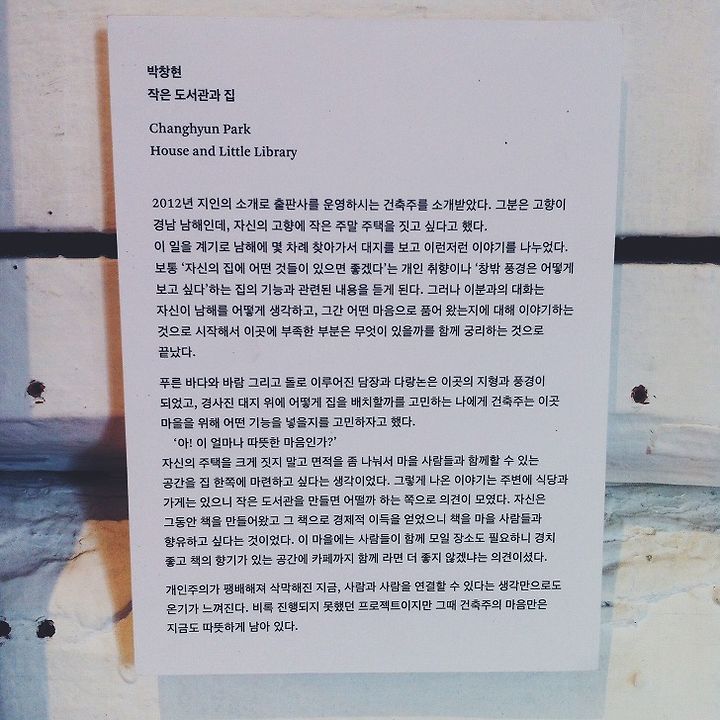 박창현
작은 도서관과 집
Changhyun Park
House and Little Library
2012년 지인의 소개로 출판사를 운영하시는 건축주를 소개받았다. 그분은 고향이
경남 남해인데, 자신의 고향에 작은 주말 주택을 짓고 싶다고 했다.
이 일을 계기로 남해에 몇 차례 찾아가서 대지를 보고 이런저런 이야기를 나누었다.
보통 ‘자신의 집에 어떤 것들이 있으면 좋겠다’는 개인 취향이나 ‘창밖 풍경은 어떻게
보고 싶다’하는 집의 기능과 관련된 내용을 듣게 된다. 그러나 이분과의 대화는
자신이 남해를 어떻게 생각하고, 그간 어떤 마음으로 품어 왔는지에 대해 이야기하는
것으로 시작해서 이곳에 부족한 부분은 무엇이 있을까를 함께 궁리하는 것으로
끝났다.
푸른 바다와 바람 그리고 돌로 이루어진 담장과 다랑논은 이곳의 지형과 풍경이
되었고, 경사진 대지 위에 어떻게 집을 배치할까를 고민하는 나에게 건축주는 이곳
마을을 위해 어떤 기능을 넣을지를 고민하자고 했다.
‘아! 이 얼마나 따뜻한 마음인가?’
자신의 주택을 크게 짓지 말고 면적을 좀 나눠서 마을 사람들과 함께할 수 있는
공간을 집 한쪽에 마련하고 싶다는 생각이었다. 그렇게 나온 이야기는 주변에 식당과
가게는 있으니 작은 도서관을 만들면 어떨까 하는 쪽으로 의견이 모였다. 자신은
그동안 책을 만들어왔고 그 책으로 경제적 이득을 얻었으니 책을 마을 사람들과
향유하고 싶다는 것이었다. 이 마을에는 사람들이 함께 모일 장소도 필요하니 경치
좋고 책의 향기가 있는 공간에 카페까지 함께 라면 더 좋지 않겠냐는 의견이셨다.
개인주의가 팽배해져 삭막해진 지금, 사람과 사람을 연결할 수 있다는 생각만으로도
온기가 느껴진다. 비록 진행되지 못했던 프로젝트이지만 그때 건축주의 마음만은
지금도 따뜻하게 남아 있다.